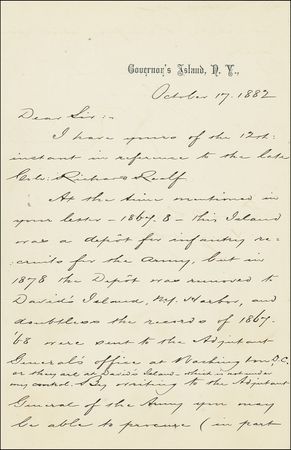 Governor's Island, N. Y.,
October 17. 1882
Dear Sir:-
I have yours of the 12th
instant in reference to the late
Col. Richard Realf.
At the time mentioned in
your letter - 1867.8 - this Island
was a depôt for infantry re-
cruits for the Army, but in
1878 the Depôt was removed to
David's Island, N.Y. Harbor, and
doubtless the records of 1867.
'68 were sent to the Adjutant
General's office at Washington, D.C.
or they are at David's Island - which is not under
my control. By writing to the Adjutant
General of the Army you may
be able to procure (in part